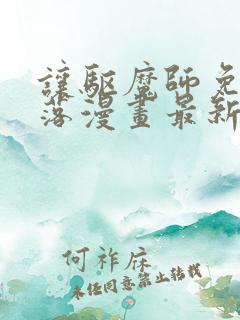 讓驅魔師免
洛漫畫最新
何祚庥
未经同意禁止转载